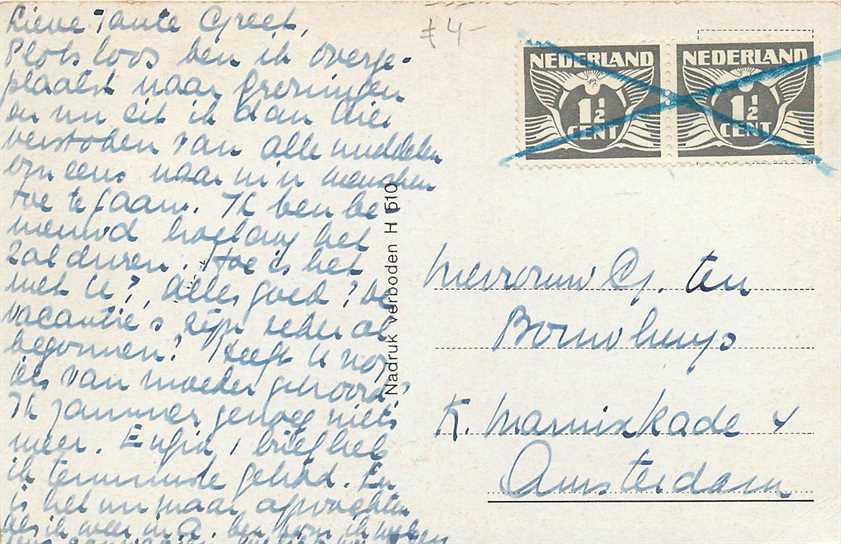 Lieve Tante Greet,
Plotsloos ben ik overge-
plaatst naar Groningen
en nu zit ik dan hier
verstoken van alle middelen
om eens naar m'n menschen
toe te gaan. Ik ben be-
nieuwd hoelang het
zal duren. Hoe is het
met U? Alles goed? De
vacantie's zijn zeker al
begonnen? Heeft U nog
iets van moeder gehoord?
Ik jammer genoeg niets
meer. Enfin, 1 brief heb
ik tenminste gehad. En
is het nu maar afwachten
als ik weer in A. ben kom ik
£ 4-
NEDERLAND
1½
CENT
NEDERLAND
1½
CENT
Nadruk verboden H 510
Mevrouw G. ten
Bouwhuys
K. Marnixkade 4
Amsterdam